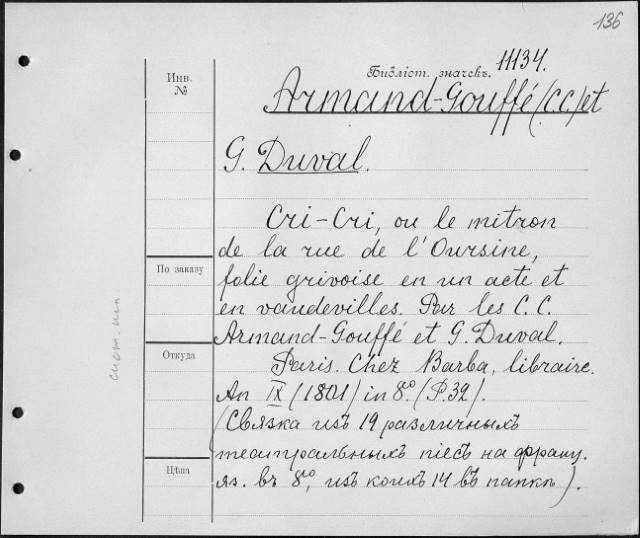 136
Библіот. значекъ. 11134.
Инв.
№
Armand-Gouffé (C.C.) et
G. Duval.
Cri-Cri, ou le mitron
de la rue de l'Oursine,
По заказу
folie grivoise en un acte et
en vaudevilles. Par les C. C.
Armand-Gouffé et G. Duval.
Откуда
Paris. Chez Barba, libraire.
An IX (1801) in 8º. (P. 32).
(Связка изъ 19 различныхъ
театральныхъ піесъ на франц.
Цѣна
яз. въ 8º, изъ коихъ 14 въ папкѣ).